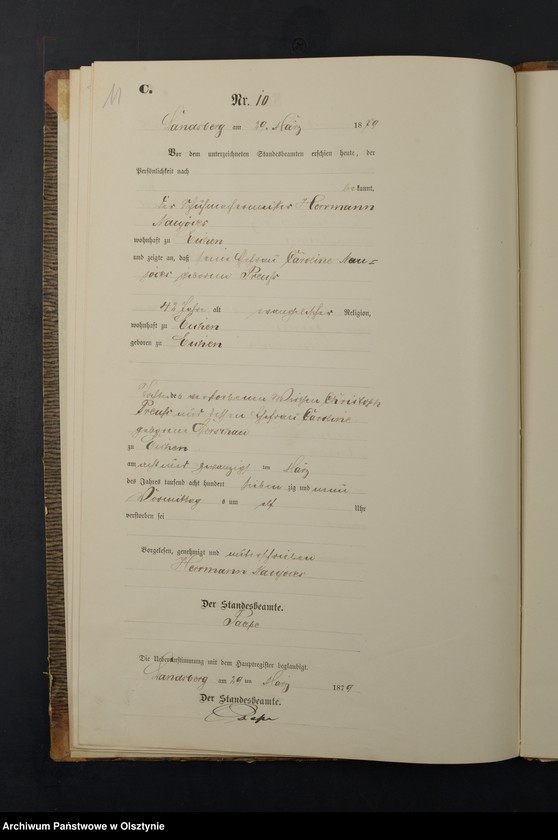 11
C.
Nr. 10
Landsberg am 29. März 1879
Vor dem unterzeichneten Standesbeamten erschien heute, der
Persönlichkeit nach
bekannt,
der Schuhmachermeister Herrmann
wohnhaft zu
und zeigte an, daß seine Ehefrau Caroline
geborene Preuß
42 Jahr alt evangelischer Religion,
wohnhaft zu
geboren zu
Tochter des verstorbenen Christoph
Preuß und dessen Ehefrau Caroline
geborene
zu
am acht und zwanzigsten März
des Jahres tausend acht hundert sieben zig und neun
Vormittag s um elf Uhr
verstorben sei
Vorgelesen, genehmigt und unterschrieben
Herrmann
Der Standesbeamte.
Paape
Die Uebereinstimmung mit dem Hauptregister beglaubigt.
Landsberg am 29 ten März 1879
Der Standesbeamte.
Paape
Archiwum Państwowe w Olsztynie